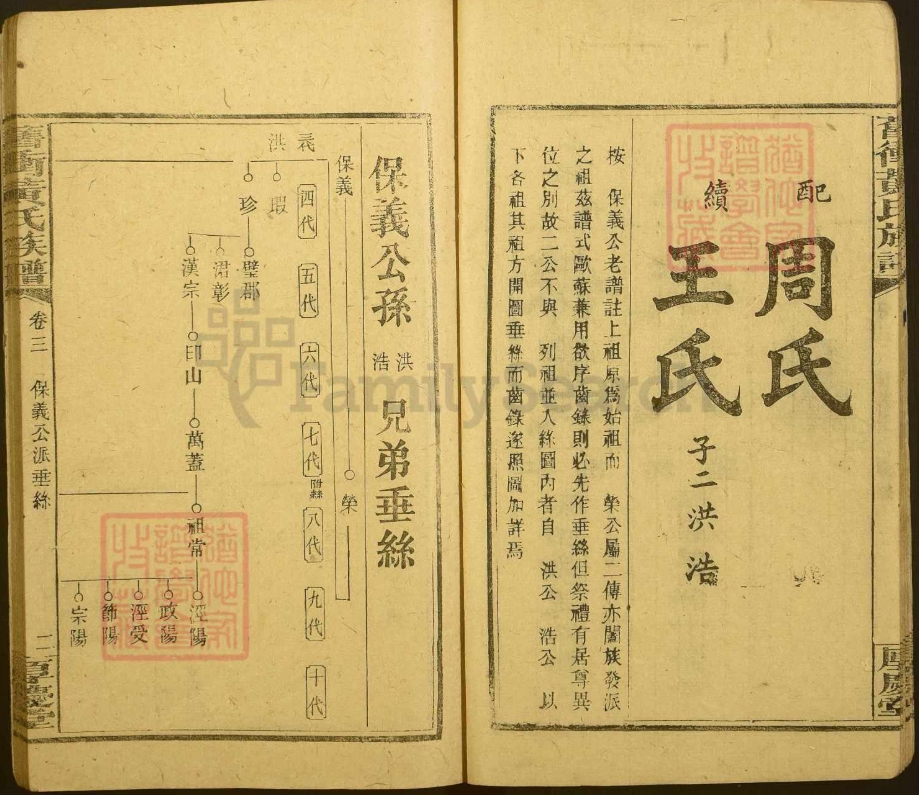 配 周氏
續 王氏 子二 洪 浩
按 保義公老譜註上祖原爲始祖而 榮公屬二傳亦闔族發派
之祖茲譜式歐蘇兼用欲序齒錄則必先作垂絲但祭禮有居尊異
位之別故二公不與 列祖並入絲圖內者自 洪公 浩公 以
下各祖其祖方開圖垂絲而齒錄逐照圖加詳焉
保義公孫 洪 浩 兄弟垂絲
保義 榮
四代 五代 六代 七代 附絲 八代 九代 十代
洪
瑕
珍
璧郡
君彰
漢宗
印山
萬蓋
祖常
涇陽
政陽
涇受
飾陽
宗陽
黃氏族譜 卷三 保義公派垂絲 二
FamilySearch